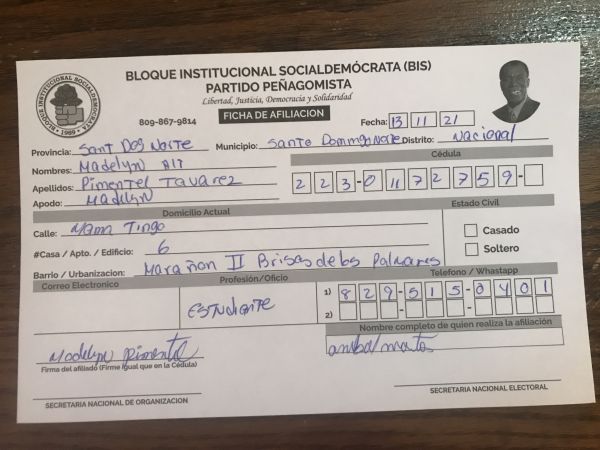 BLOQUE INSTITUCIONAL SOCIALDEMÓCRATA (BIS)
PARTIDO PEÑAGOMISTA
Libertad, Justicia, Democracia y Solidaridad
BLOQUE INSTITUCIONAL SOCIALDEMOCRATA
1989
809-867-9814
FICHA DE AFILIACION
Fecha: 13 11 21
Provincia: Sant Dog Norte Municipio: Santo Domingo Norte Distrito: Nacional
Nombres: Madelyn Alt
Cédula
Apellidos: Pimentel Tavarez
223-01172759-
Apodo: Madelyn
Domicilio Actual
Estado Civil
Calle: Mama Tingo
Casado
#Casa / Apto. / Edificio: 6
Soltero
Barrio / Urbanizacion: Marañon II Brisas de los Palmares
Correo Electronico
Profesión/Oficio
Telefono / Whastapp
ESTUDIANTE
1) 829-515-0401
2)
Nombre completo de quien realiza la afiliación
Madelyn Pimentel
anibal matos
Firma del afiliado (Firme igual que en la Cédula)
SECRETARIA NACIONAL DE ORGANIZACION
SECRETARIA NACIONAL ELECTORAL